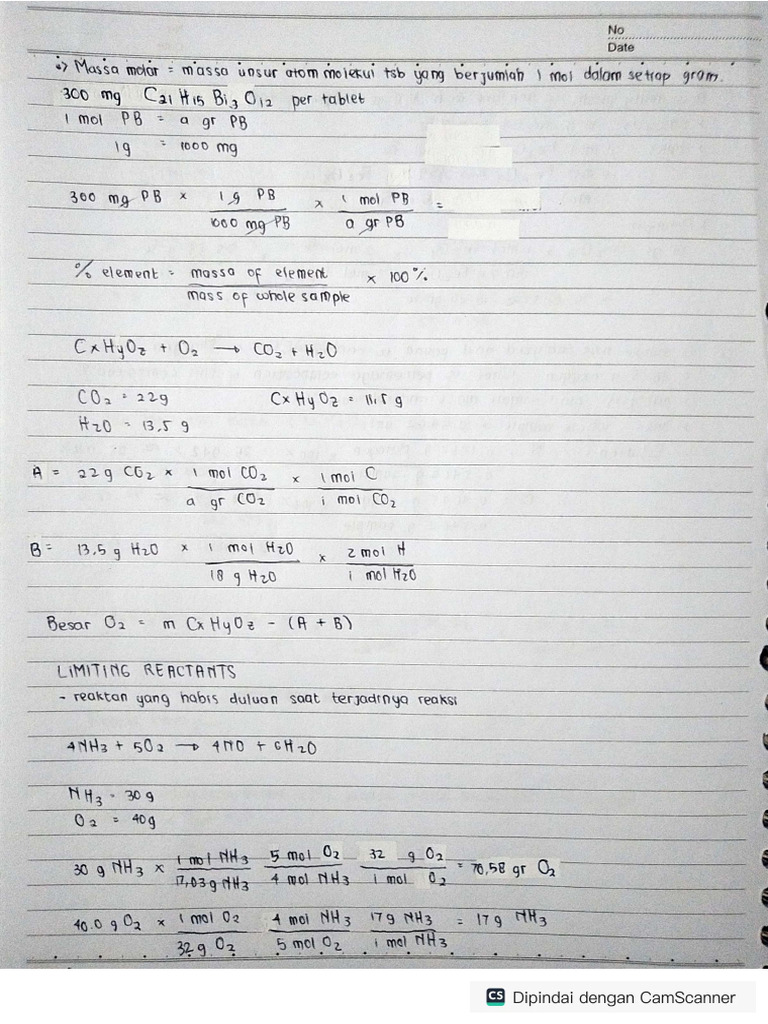 No
Date
↳ Massa molar = massa unsur atom molekul tsb yang berjumlah 1 mol dalam setiap gram.
300 mg C21 H15 Bi3 O12 per tablet
1 mol PB = a gr PB
1g = 1000 mg
300 mg PB × 1 g PB / 1000 mg PB × 1 mol PB / a gr PB =
% element = massa of element / mass of whole sample × 100%
CxHyOz + O2 → CO2 + H2O
CO2 = 22g CxHyOz = 11,5 g
H2O = 13,5 g
A = 22 g CO2 × 1 mol CO2 / a gr CO2 × 1 mol C / 1 mol CO2
B = 13,5 g H2O × 1 mol H2O / 18 g H2O × 2 mol H / 1 mol H2O
Besar O2 = m CxHyOz - (A + B)
LIMITING REACTANTS
- reaktan yang habis duluan saat terjadinya reaksi
4NH3 + 5O2 → 4NO + 6H2O
NH3 = 30 g
O2 = 40g
30 g NH3 × 1 mol NH3 / 17,03 g NH3 5 mol O2 / 4 mol NH3 32 g O2 / 1 mol O2 = 70,58 gr O2
40.0 g O2 × 1 mol O2 / 32 g O2 4 mol NH3 / 5 mol O2 17 g NH3 / 1 mol NH3 = 17 g NH3
CS Dipindai dengan CamScanner